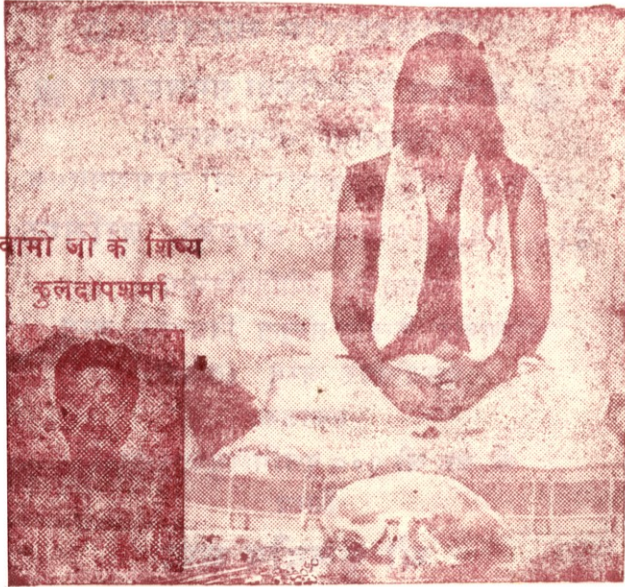 वामी जी के शिष्य
कुलदीपशर्मा